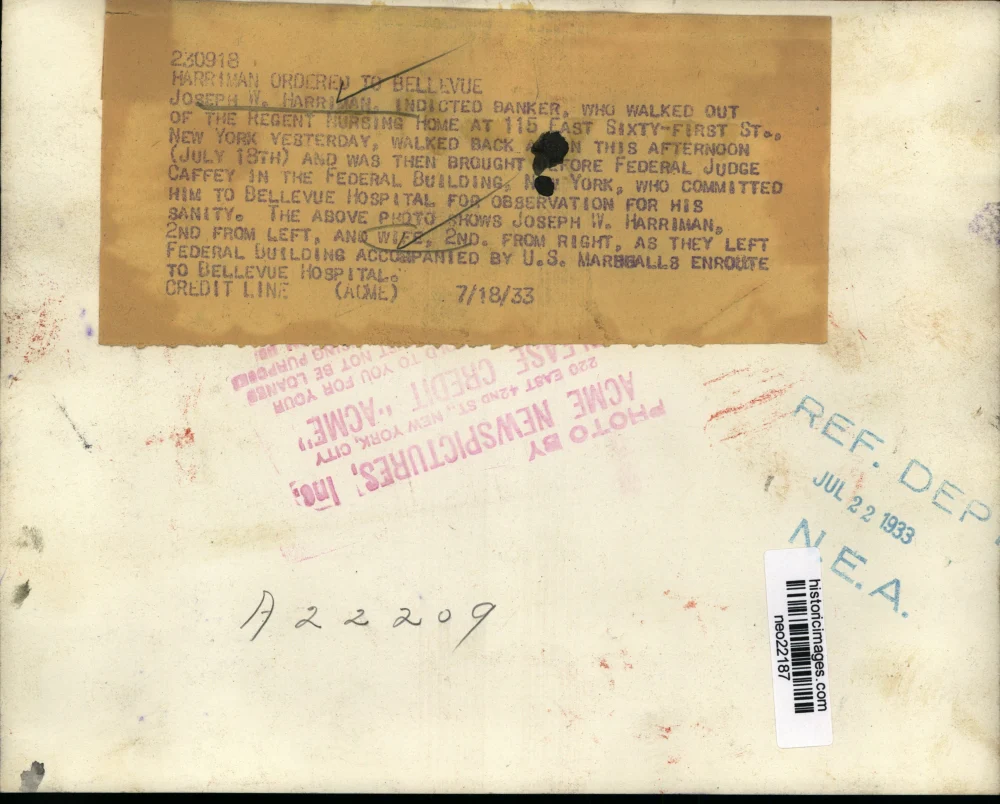 230918
HARRIMAN ORDERED TO BELLEVUE
JOSEPH W. HARRIMAN, INDICTED BANKER, WHO WALKED OUT
OF THE REGENT NURSING HOME AT 115 EAST SIXTY-FIRST ST.,
NEW YORK YESTERDAY, WALKED BACK IN THIS AFTERNOON
(JULY 18TH) AND WAS THEN BROUGHT BEFORE FEDERAL JUDGE
CAFFEY IN THE FEDERAL BUILDING, NEW YORK, WHO COMMITTED
HIM TO BELLEVUE HOSPITAL FOR OBSERVATION FOR HIS
SANITY. THE ABOVE PHOTO SHOWS JOSEPH W. HARRIMAN,
2ND FROM LEFT, AND WIFE, 2ND. FROM RIGHT, AS THEY LEFT
FEDERAL BUILDING ACCOMPANIED BY U.S. MARSHALLS ENROUTE
TO BELLEVUE HOSPITAL.
CREDIT LINE (ACME) 7/18/33
PHOTO BY
ACME NEWSPICTURES, Inc.
220 EAST 42ND ST., NEW YORK, CITY
PLEASE CREDIT "ACME"
TO YOU FOR YOUR
NOT BE LOANED
REF. DEP
JUL 22 1933
N.E.A.
A22209
historicimages.com
neo22187